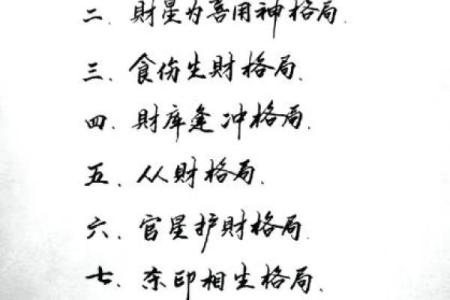 二、財星为喜用神格局.
三、食伤生財格局.
四、財库逢冲格局.
五、从財格局.
六、官星护財格局.
七、杀印相生格局.